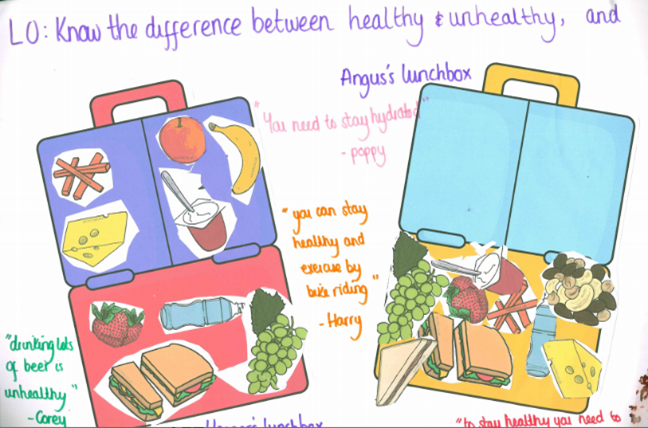 LO: Know the difference between healthy & unhealthy, and
Angus's lunchbox
"You need to stay hydrated"
- poppy
"you can stay
healthy and
exercise by
bike riding"
- Harry
"drinking lots
of beer is
unhealthy"
- Corey
lunchbox
"to stay healthy you need to